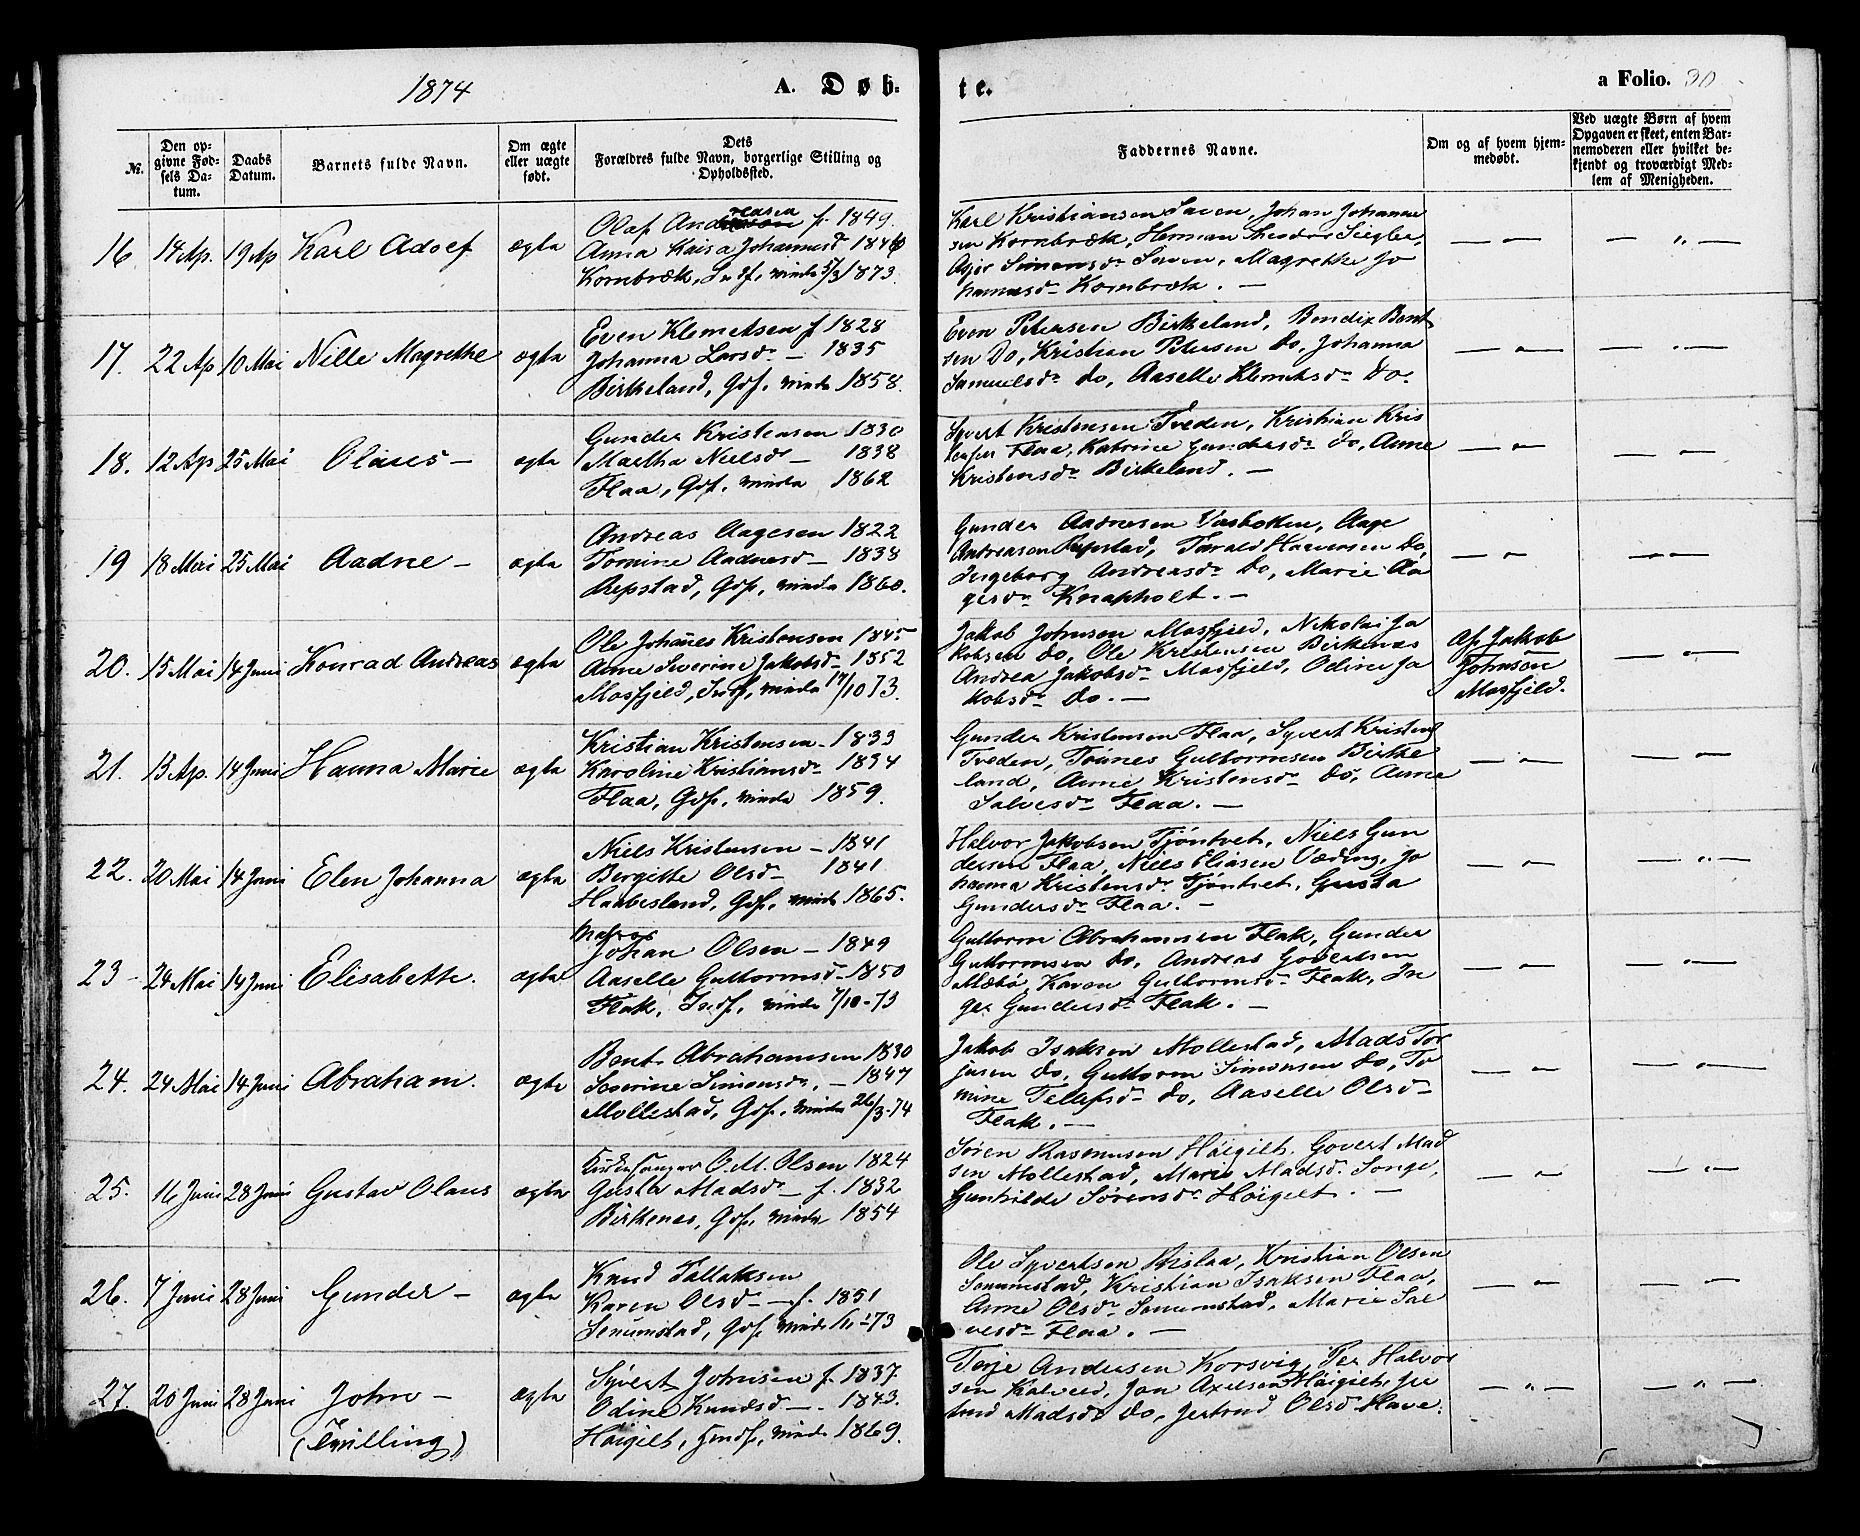 1874
A. Døb-
te.
a Folio. 30
No.
Den op-
givne Fød-
sels Da-
tum.
Daabs
Datum.
Barnets fulde Navn.
Om ægte
eller uægte
født.
Dets
Forældres fulde Navn, borgerlige Stilling og
Opholdssted.
Faddernes Navne.
Om og af hvem hjem-
medøbt.
Ved uægte Børn af hvem
Opgaven er skeet, enten Bar-
nemoderen eller hvilket be-
kjendt og troværdigt Med-
lem af Menigheden.
16. 14 Ap. 19 Ap Karl Adolf ægte
Olaf Andreasen f. 1849.
Anna Kaisa Johannesd 1846
Kornbræk, In. sf, viede 5/3 1873.
Karl Kristiansen Saven, Johan Johanne
sen Kornbræk, Herman Theodor Siegler,
Asjer Simonsdr Saven, Magrethe Jo
hannesdr Kornbræk. —
17. 22 Ap 10 Mai Nille Magrethe ægte
Even Klemetsen f 1828
Johanna Larsdr — 1835
Birkeland, Gdf. viede 1858.
Even Petersen Birkeland, Bendix Bent
sen do, Kristian Petersen do, Johanna
Samuelsdr do, Aaselle Klemetsdr do.
18. 12 Ap 25 Mai Olaus — ægte
Gunder Kristensen 1830
Martha Nielsdr — 1838
Flaa, Gdf. viede 1862
Syvert Kristensen Tveden, Kristian Kris
tensen Flaa, Katrine Gundersdr do, Anne
Kristensdr Birkeland. —
19 18 Mai 25 Mai Aadne — ægte
Andreas Aagesen 1822
Tomine Aadnesd — 1838
Repstad, Gdf, viede 1860.
Gunder Aadnesen Vasbotten, Aage
Andreasen Repstad, Tarald Halvorsen do,
Ingeborg Andreasdr do, Marie Aa
gesdr Knapholt. —
20. 15 Mai 14 Juni Konrad Andreas ægte
Ole Johannes Kristensen 1845
Anne Severine Jakobsdr 1852
Mosfjeld, Indf, viede 17/10 73.
Jakob Johnsen Mosfjeld, Nikolai Ja
kobsen do, Ole Kristensen Birkenæs
Andrea Jakobsdr Mosfjeld, Odine Ja
kobsdr do. —
Af Jakob
Johnsen
Mosfjeld.
21. 13 Ap. 14 Juni Hanna Marie ægte
Kristian Kristensen — 1833
Karoline Kristiansdr 1834
Flaa, Gdf, viede 1859.
Gunder Kristensen Flaa, Syvert Kristens
Tveden, Tønnes Guttormsen Birke
land, Anne Kristensdr do, Anne
Salvesdr Flaa. —
22. 20 Mai 14 Juni Elen Johanna ægte
Niels Kristensen — 1841
Bergitte Olsd — 1841
Haabesland, Gdf. viede 1865.
Halvor Jakobsen Tjøntvet, Niels Gun
dersen Flaa, Niels Eliasen Væding, Jo
hanna Kristensdr Tjøntvet, Gusta
Gundersdr Flaa. —
23 24 Mai 14 Juni Elisabeth. ægte
Johan Olsen — 1849
Aaselle Guttormsd 1850
Flak, Indf, viede 7/10-73
Guttorm Abrahamsen Flak, Gunder
Guttormsen do, Andreas Govertsen
Mæbø, Karen Guttormsdr Flak, In
ger Gundersdr Flak. —
24. 24 Mai 14 Juni Abraham. ægte
Bent Abrahamsen 1830
Severine Simonsdr. — 1847
Mollestad, Gdf, viede 26/3-74
Jakob Isaksen Mollestad, Mads Tor
jusen do, Guttorm Simonsen do, To
mine Tellefsdr do, Aaselle Olsd —
Flak. —
25. 16 Juni 28 Juni Gustav Olaus ægte
Kirkesanger O. M. Olsen 1824
Gusta Madsdr — f. 1832
Birkenes, Gdf. viede 1854
Søren Rasmusen Høigilt, Govert Mad
sen Mollestad, Marie Madsd. Songe,
Gunhilde Sørensdr Høigilt. —
26. 7 Juni 28 Juni Gunder — ægte
Knud Tallaksen
Karen Olsdr — f. 1851
Senumstad, Gdf. viede
Ole Syvertsen Rislaa, Kristian Olsen
Senumstad, Kristian Isaksen Flaa,
Anne Olsdr Senumstad, Marie Sal
vesdr Flaa. —
27. 20 Juni 28 Juni John — ægte
(Tvilling)
Syvert Johnsen f. 1837
Odine Knudsd — 1843.
Høigilt, viede 1869.
Terje Andersen Korsvig, Per Halvor
sen Kalveld, Jon Axelsen Høigilt, Jer
trud Madsdr do, Jertrud Olsd Have.